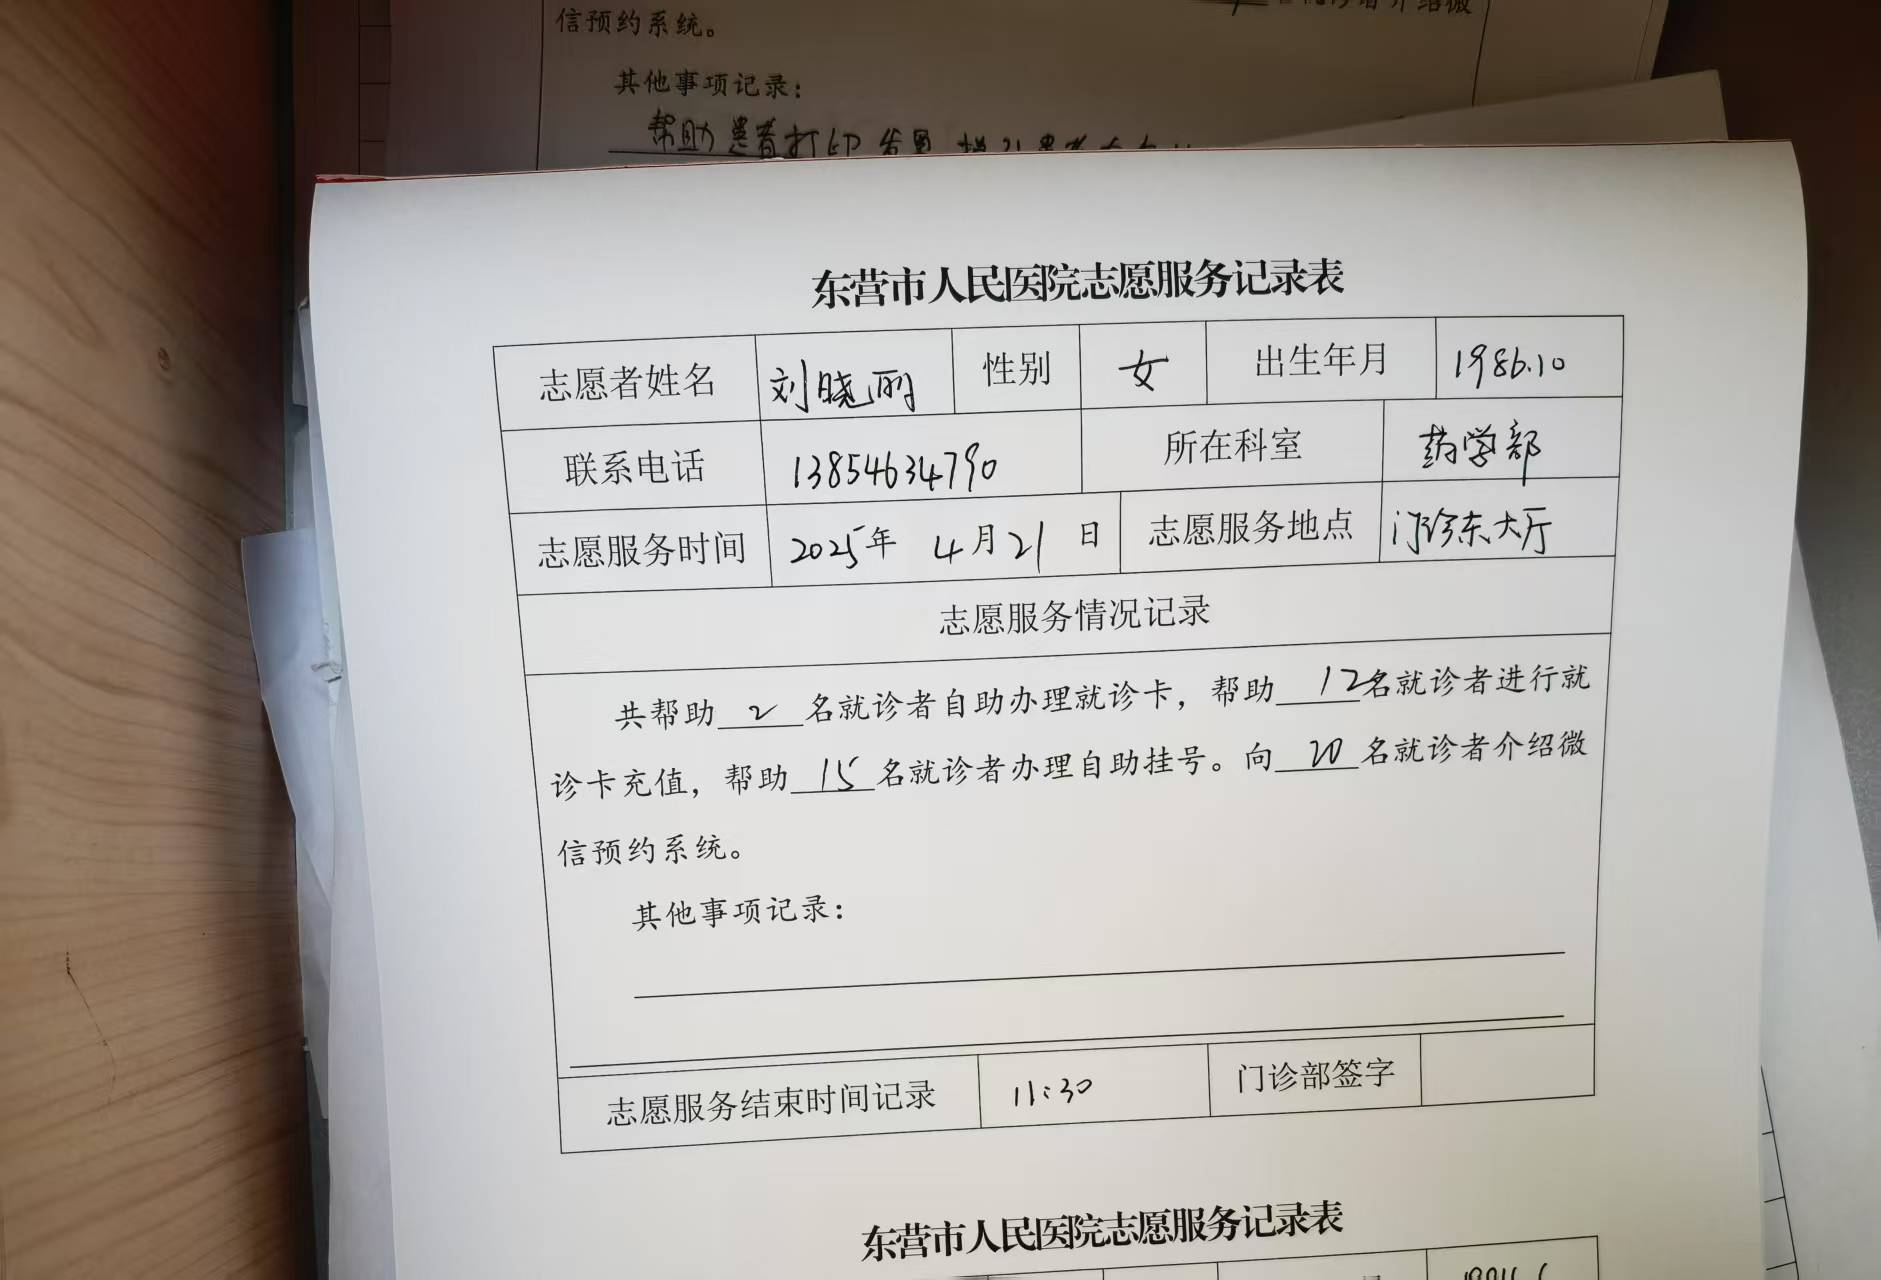 信预约系统。
其他事项记录：
帮助患者打印
东营市人民医院志愿服务记录表
志愿者姓名 刘晓丽 性别 女 出生年月 1986.10
联系电话 13854634790 所在科室 药学部
志愿服务时间 2025年 4月21日 志愿服务地点 门诊东大厅
志愿服务情况记录
共帮助 2 名就诊者自助办理就诊卡，帮助 12名就诊者进行就
诊卡充值，帮助 15 名就诊者办理自助挂号。向 20 名就诊者介绍微
信预约系统。
其他事项记录：
志愿服务结束时间记录 11:30 门诊部签字
东营市人民医院志愿服务记录表